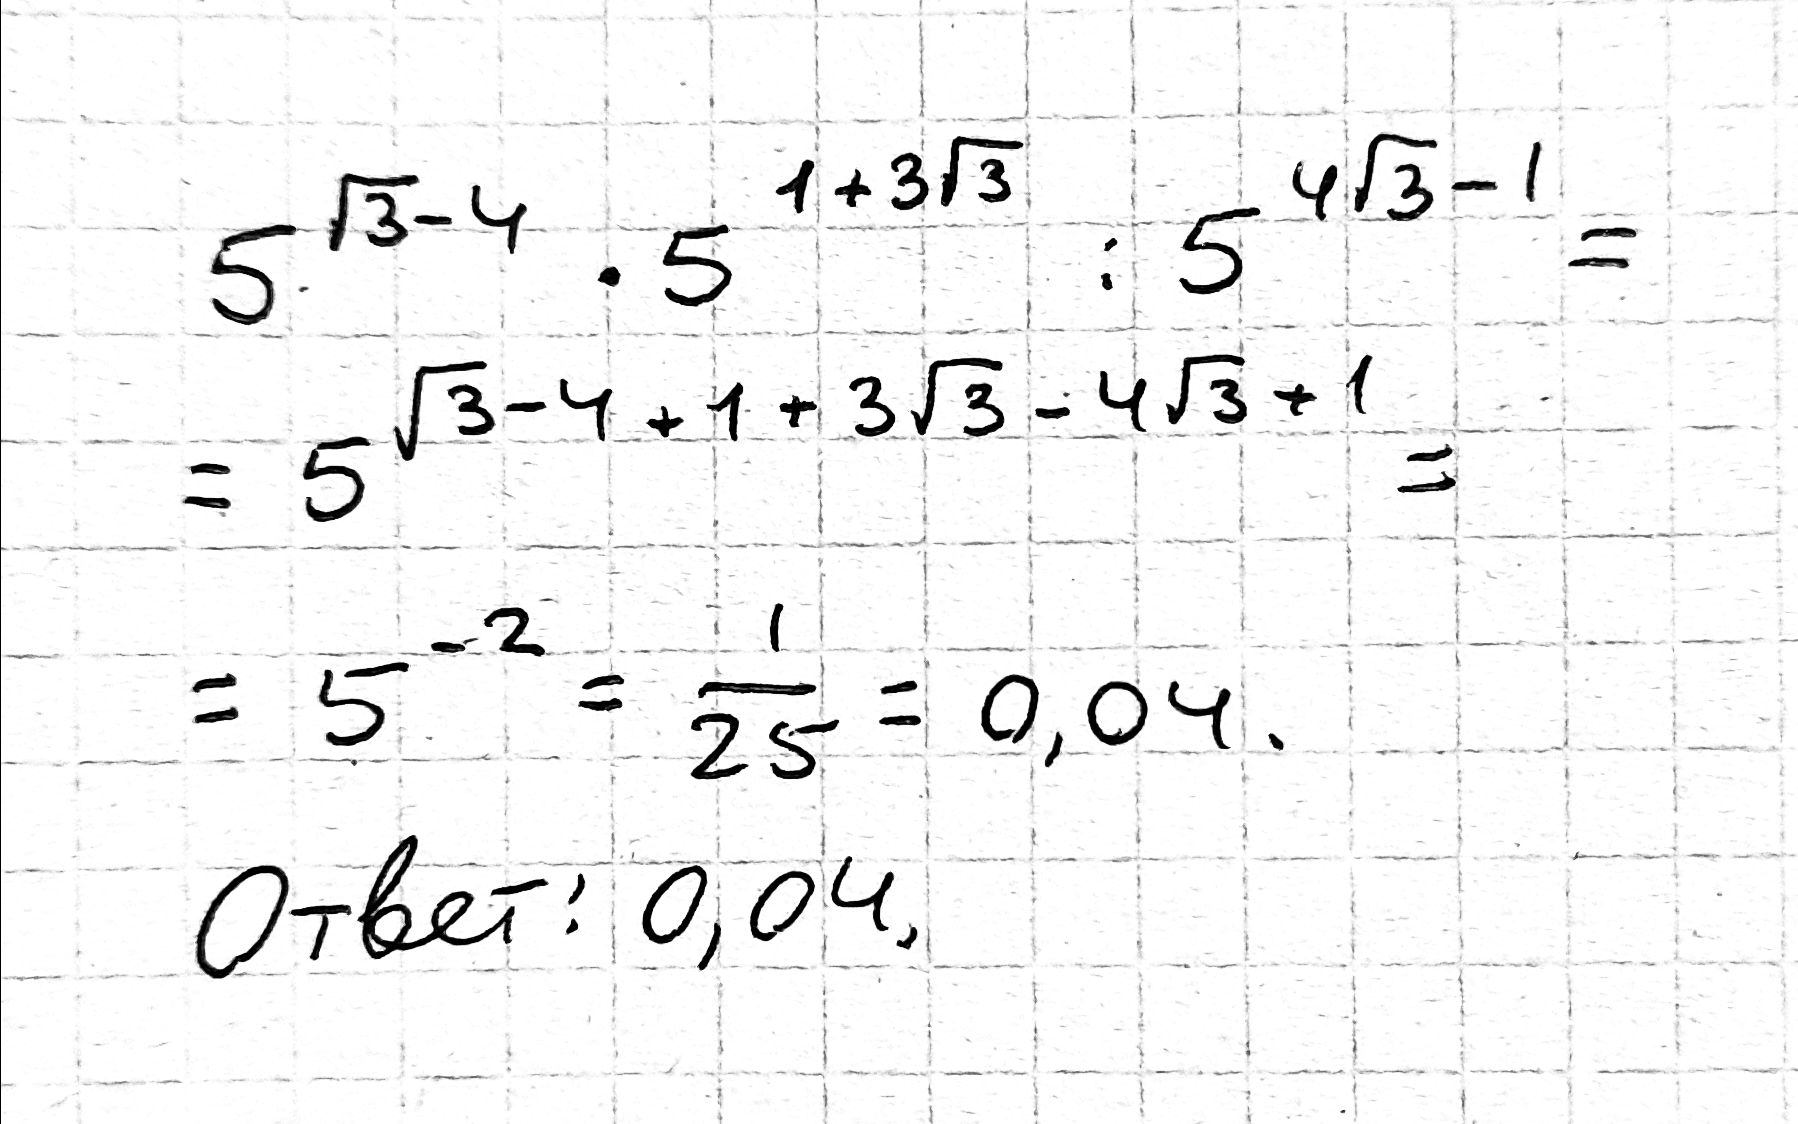 5^{√3-4} · 5^{1+3√3} : 5^{4√3-1} =
= 5^{√3-4+1+3√3-4√3+1} =
= 5^{-2} = 1/25 = 0,04.
Ответ: 0,04.